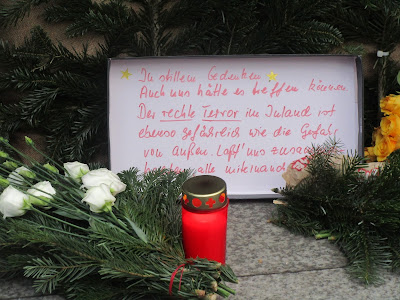 In stillem Gedenken
Auch uns hätte es treffen können.
Der rechte Terror im Inland ist
ebenso gefährlich wie die Gefahr
von außen. Laßt uns
alle miteinand